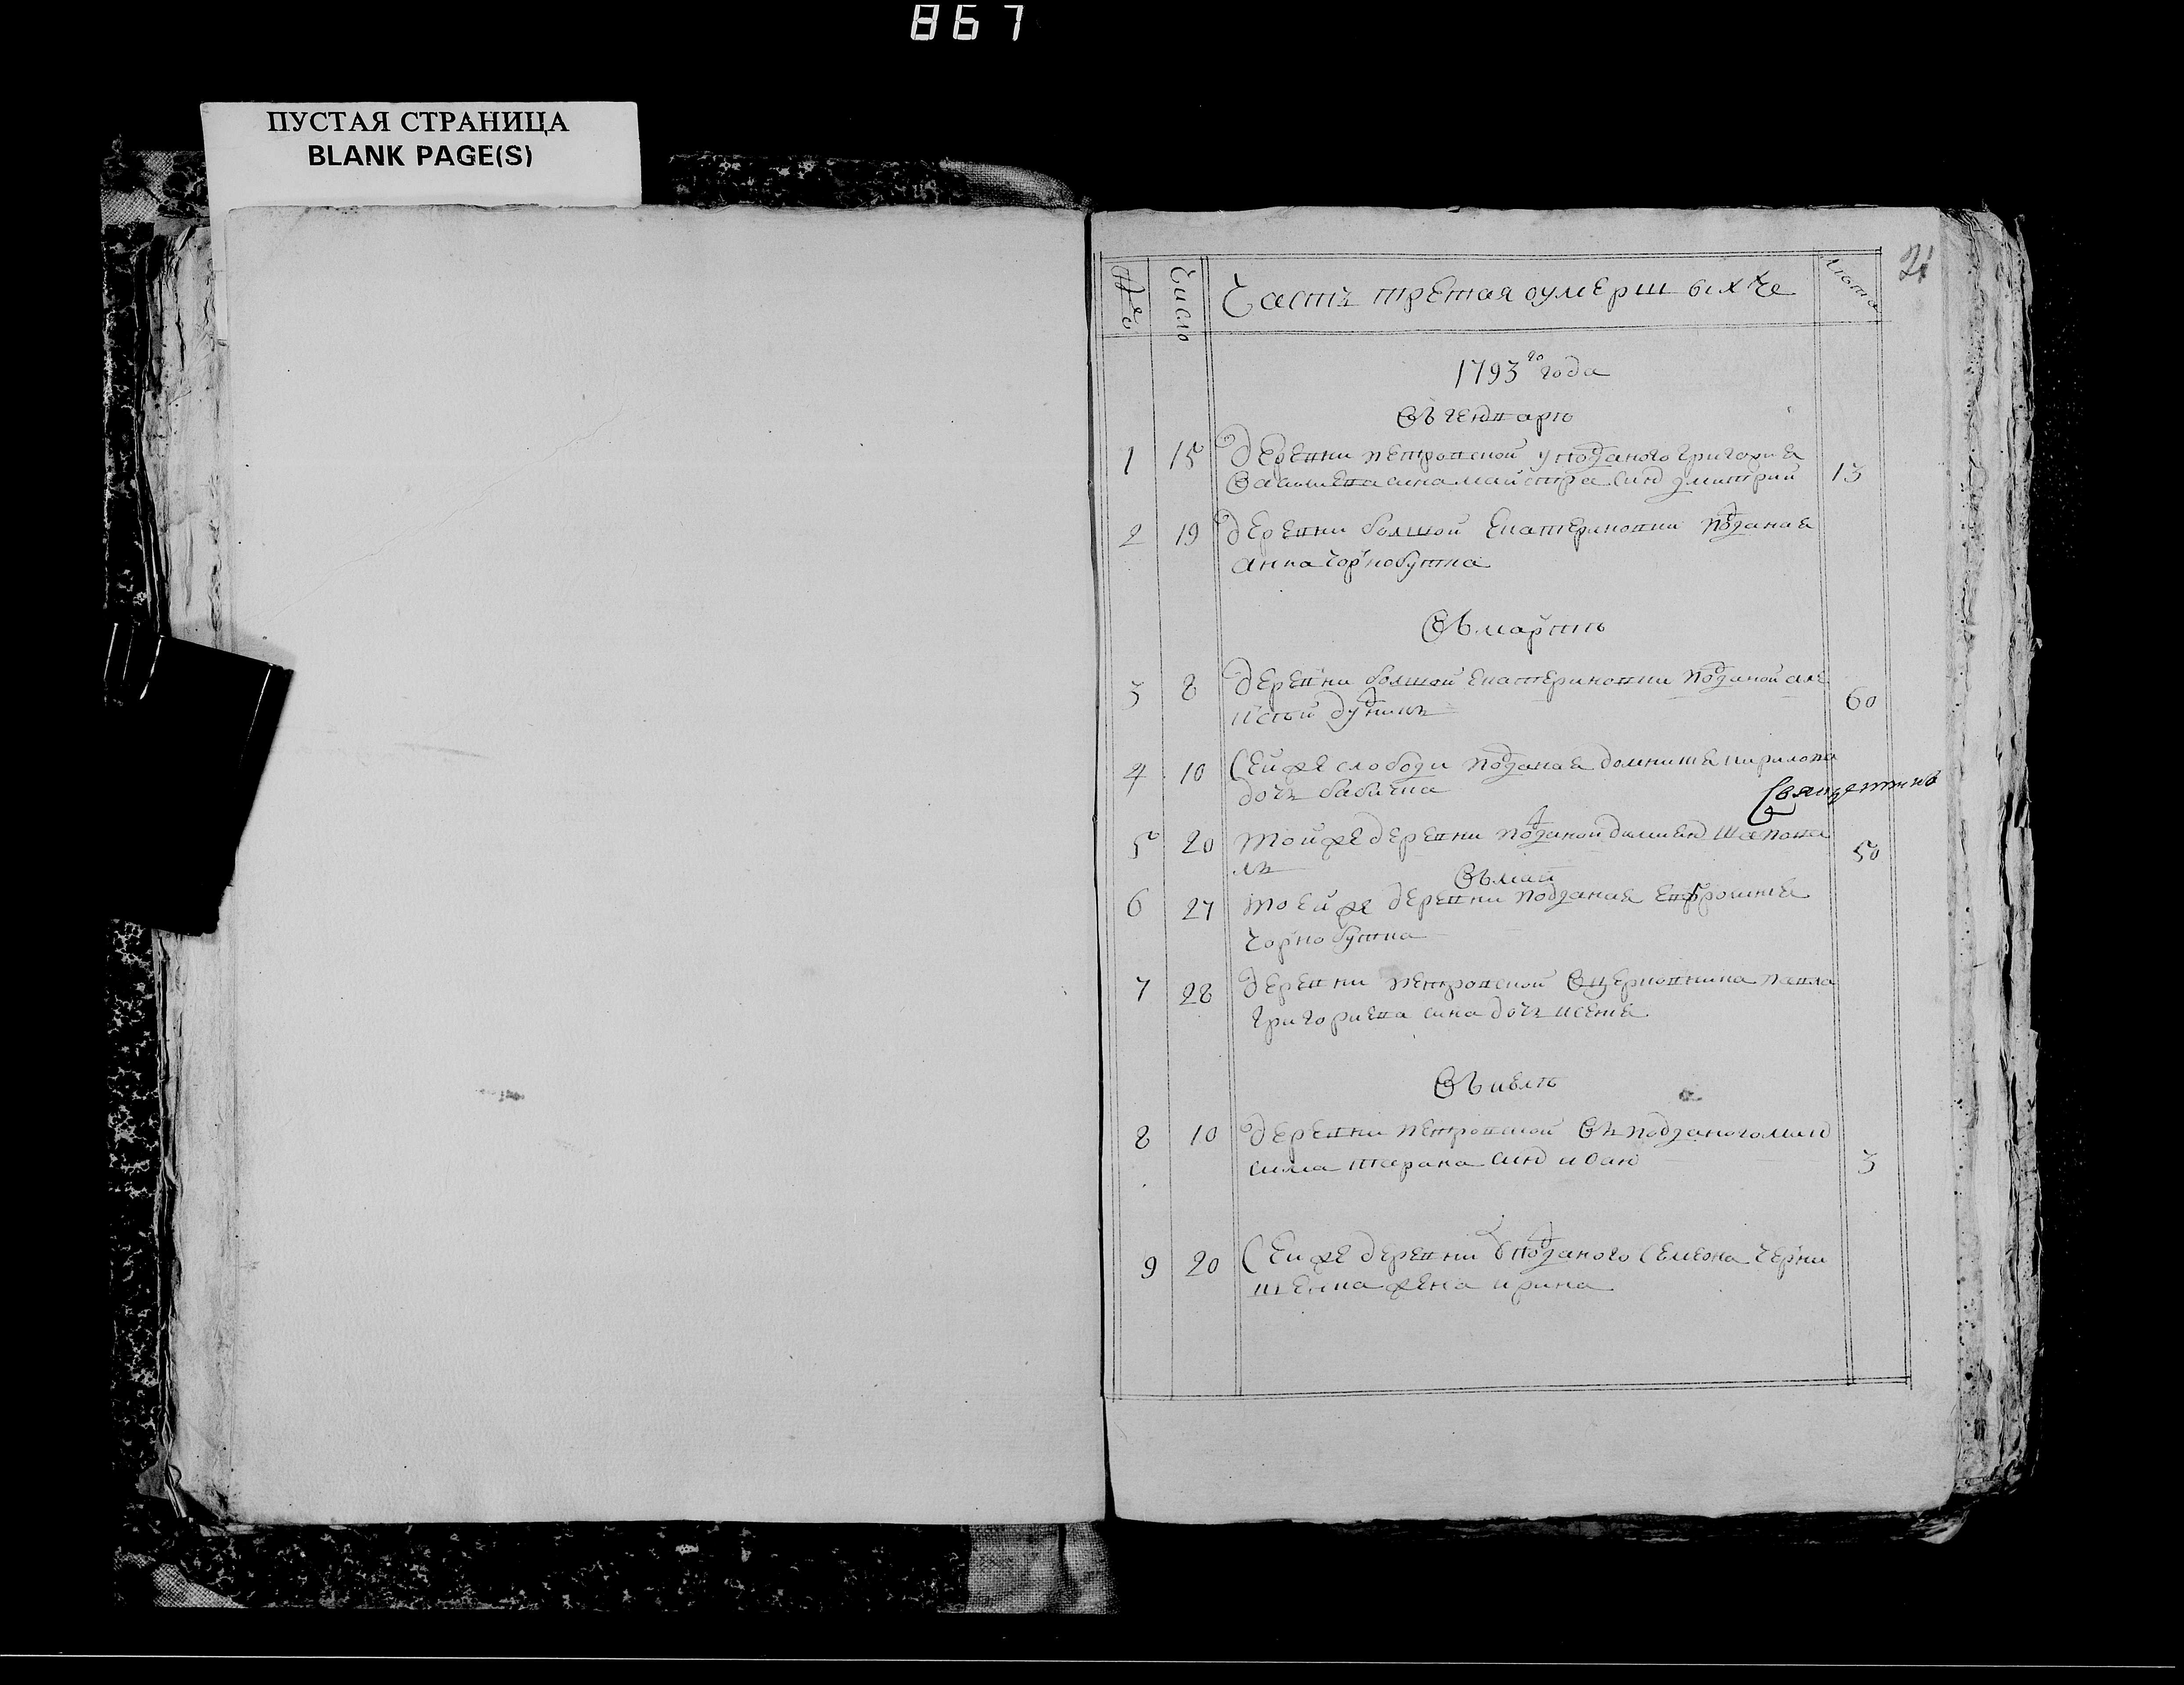 867
ПУСТАЯ СТРАНИЦА
BLANK PAGE(S)
21
Число Часть третая оумершыхъ Лѣта
1793го года
Въ генварѣ
1 15 деревни петровской у подданого григориа
василева сина майстра син дмитрий 13
2 19 деревни болшой Екатериновки подданая
анна чорнобутка
Въ мартѣ
3 8 деревни болшой Екатериновки подданой
60
4 10 Сей же слободи подданая домникия кирилова
дочь бабична
5 20 той же деревни подданой дамиан шапова
лъ 50
Въ май
6 27 тоей же деревни подданая Евфросиния
чорнобутка
7 28 деревни петровской павла
григориева сина дочь ксения
Въ июлѣ
8 10 деревни петровской въ подданого мак
сима тарана син иван 3
9 20 Сей же деревни в подданого Семеона черни
шенка жена ирина